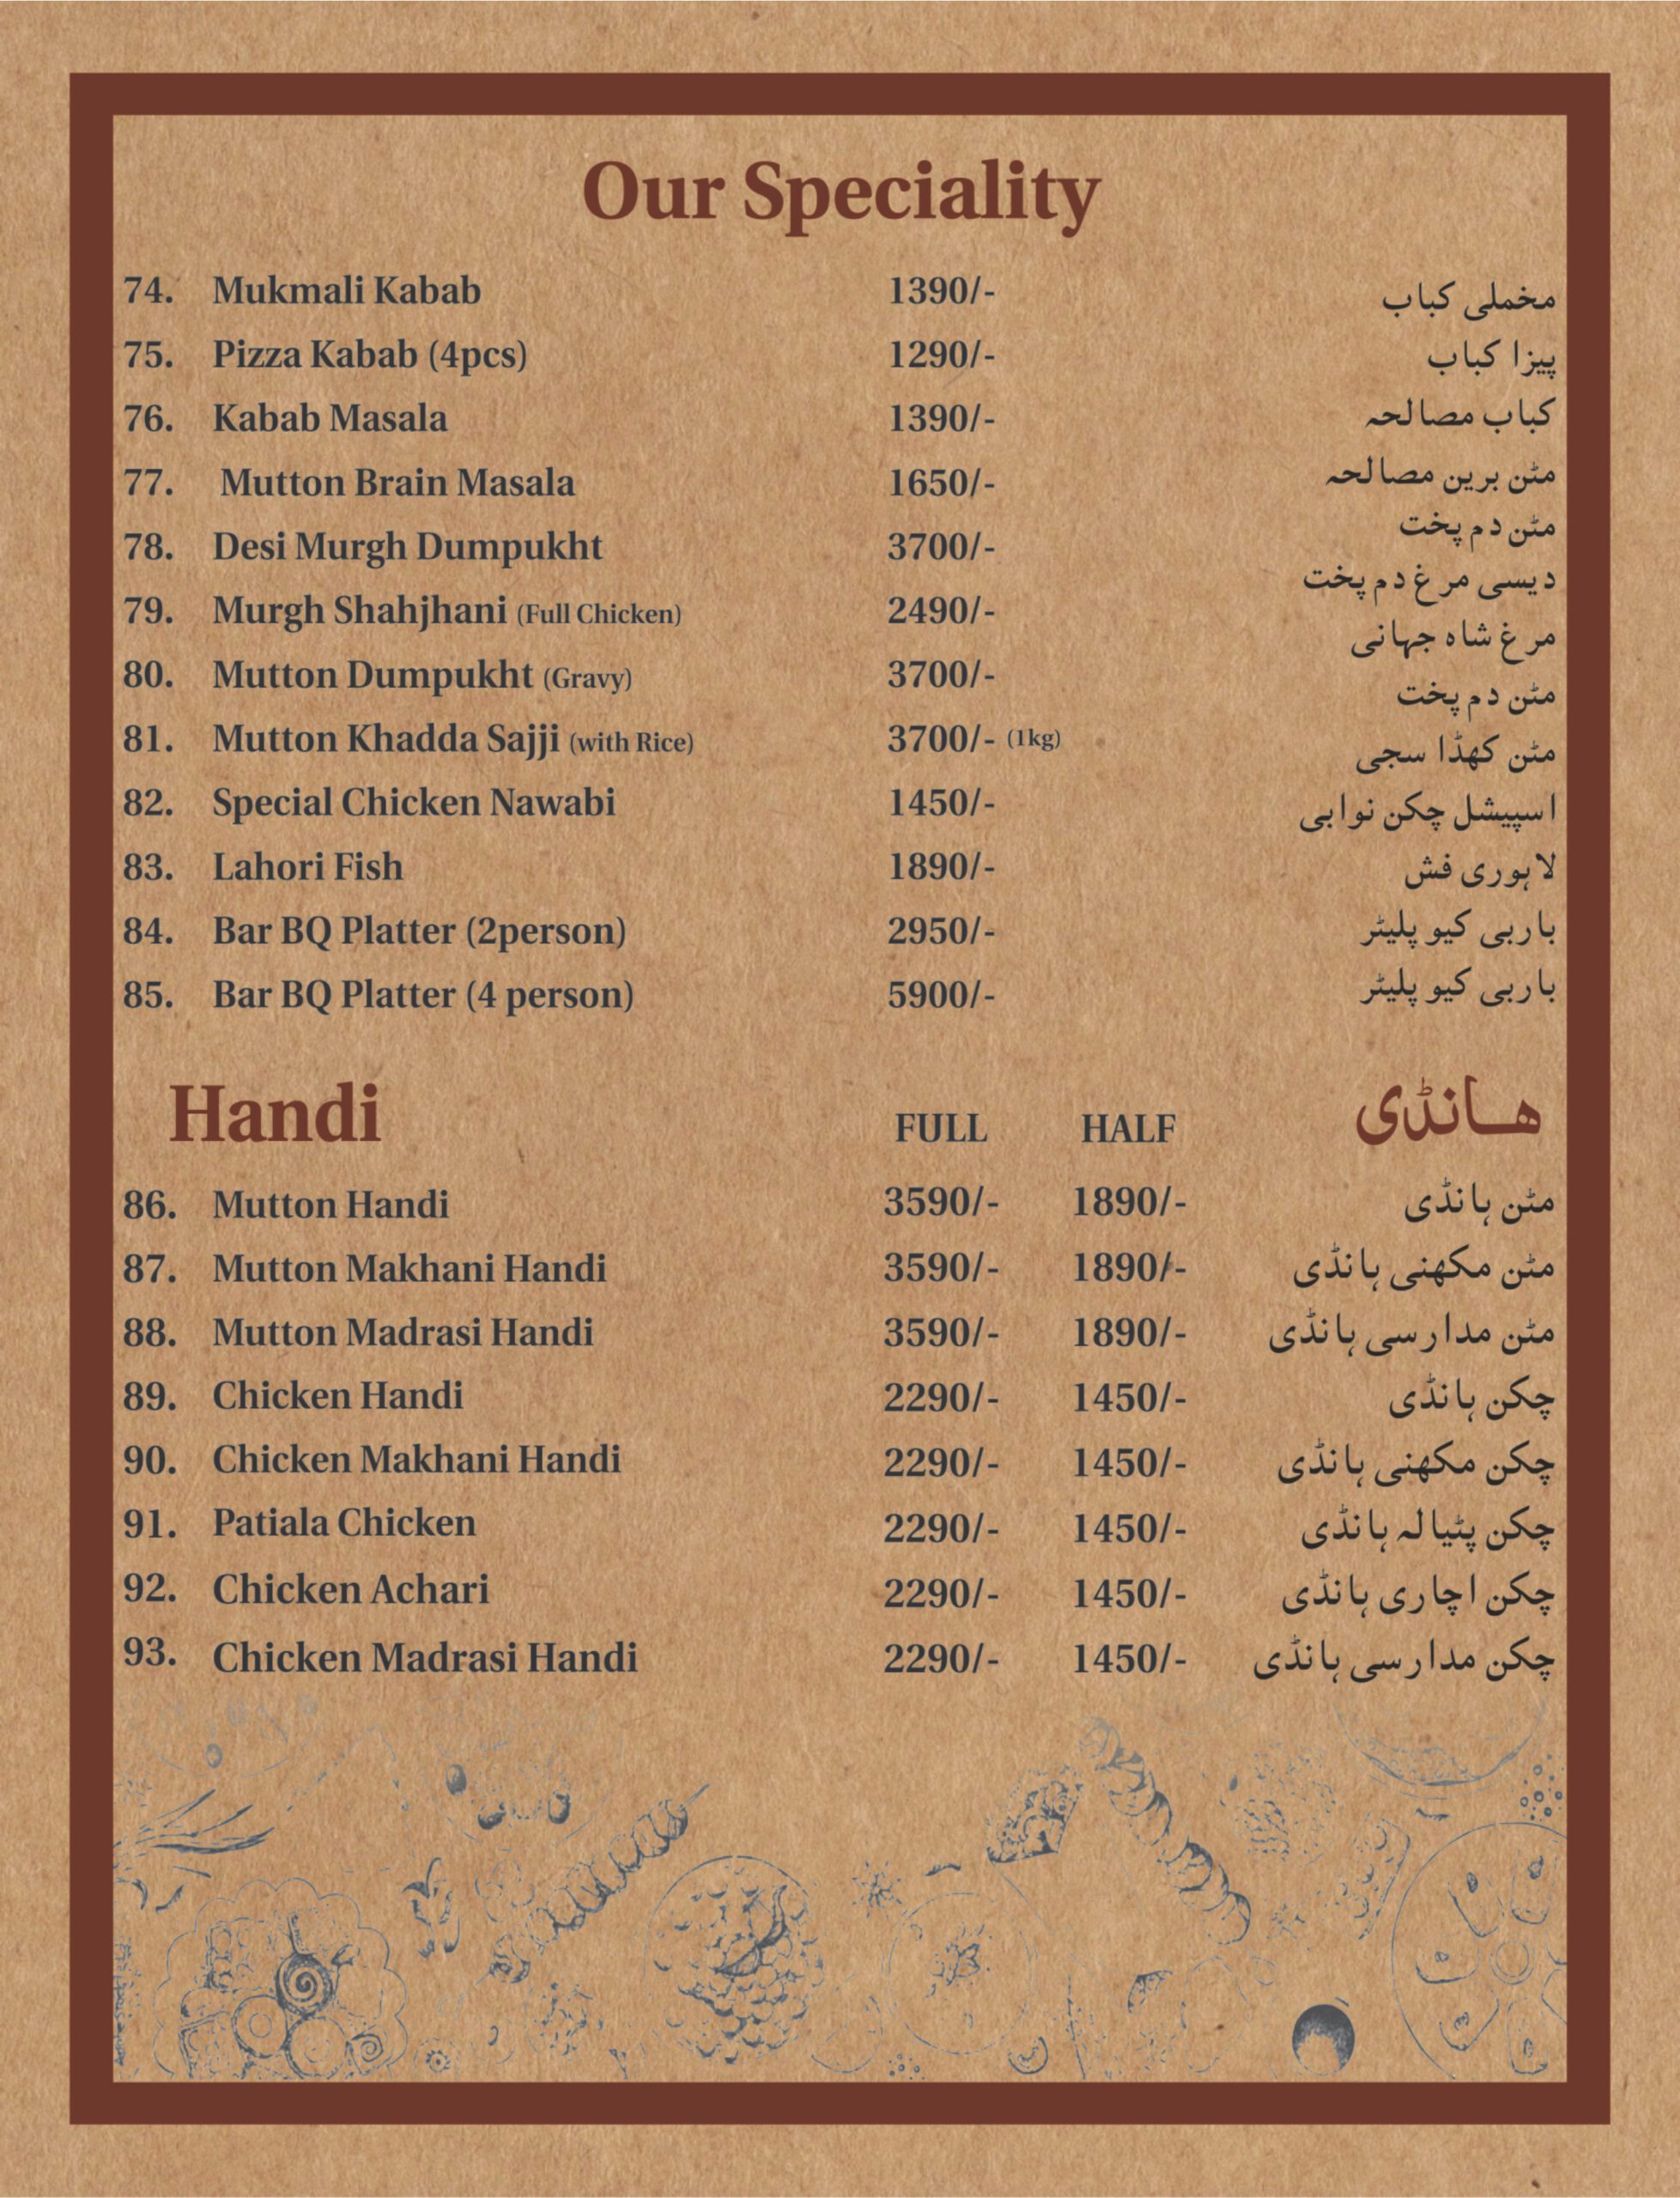 Our Speciality
74. Mukmali Kabab 1390/- مخملی کباب
75. Pizza Kabab (4pcs) 1290/- پیزا کباب
76. Kabab Masala 1390/- کباب مصالحہ
77. Mutton Brain Masala 1650/- مٹن برین مصالحہ
78. Desi Murgh Dumpukht 3700/- مٹن دم پخت
دیسی مرغ دم پخت
79. Murgh Shahjhani (Full Chicken) 2490/- مرغ شاہ جہانی
80. Mutton Dumpukht (Gravy) 3700/- مٹن دم پخت
81. Mutton Khadda Sajji (with Rice) 3700/- (1kg) مٹن کھڈا سجی
82. Special Chicken Nawabi 1450/- اسپیشل چکن نوابی
83. Lahori Fish 1890/- لاہوری فش
84. Bar BQ Platter (2person) 2950/- باربی کیو پلیٹر
85. Bar BQ Platter (4 person) 5900/- باربی کیو پلیٹر
Handi FULL HALF ھانڈی
86. Mutton Handi 3590/- 1890/- مٹن ہانڈی
87. Mutton Makhani Handi 3590/- 1890/- مٹن مکھنی ہانڈی
88. Mutton Madrasi Handi 3590/- 1890/- مٹن مدارسی ہانڈی
89. Chicken Handi 2290/- 1450/- چکن ہانڈی
90. Chicken Makhani Handi 2290/- 1450/- چکن مکھنی ہانڈی
91. Patiala Chicken 2290/- 1450/- چکن پٹیالہ ہانڈی
92. Chicken Achari 2290/- 1450/- چکن اچاری ہانڈی
93. Chicken Madrasi Handi 2290/- 1450/- چکن مدارسی ہانڈی